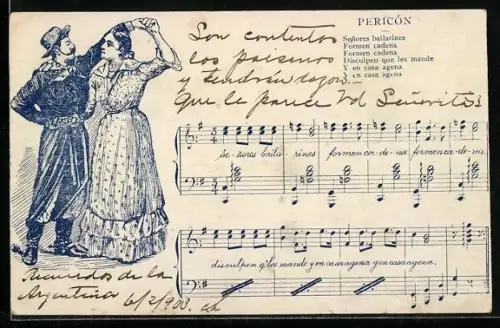 PERICÓN
Señores bailarines
Formen cadena
Formen cadena
Disculpen que les mande
Y en casa agena
Y en casa agena
Son contentos
los paisanos
y tendrán razon
Que le parece Vd Señorita
se-ñores baila-rines formen ca-de-na formen ca-de-na
disculpen q' les mande y en casa agena y en casa agena.
Recuerdos de la
Argentina 6/2/903.